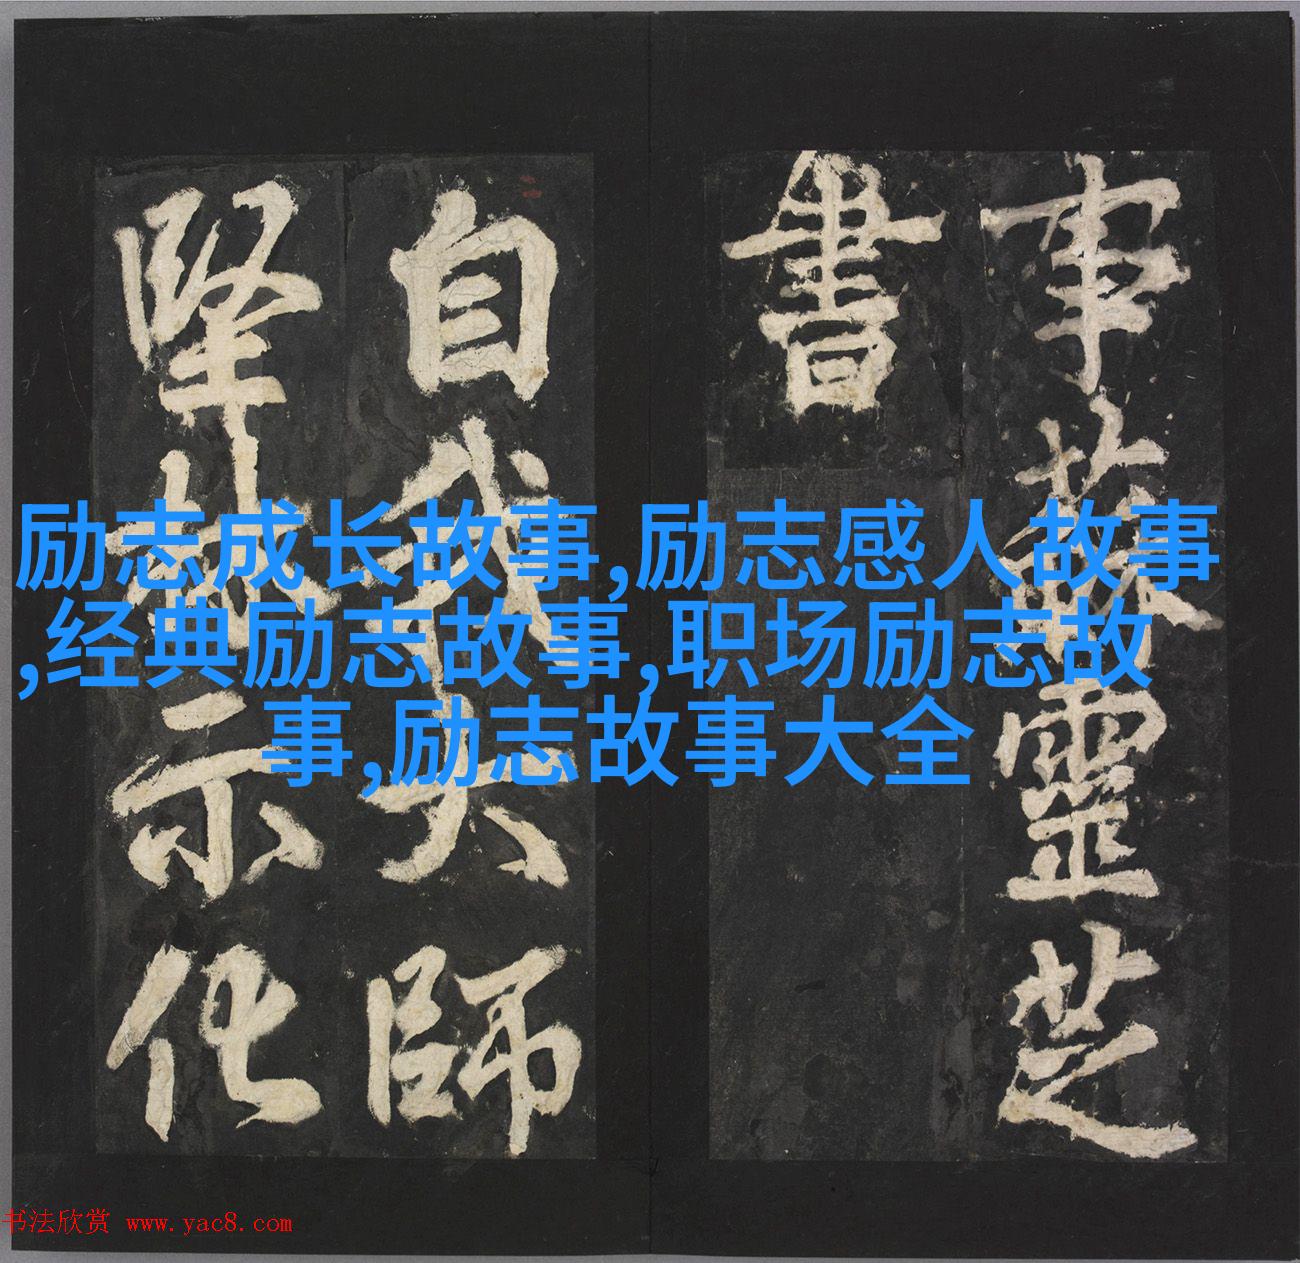 事蘇靈芝
書
自我大師
堅林示化
励志成长故事,励志感人故事
,经典励志故事,职场励志故
事,励志故事大全
书法欣赏 www.yac8.com